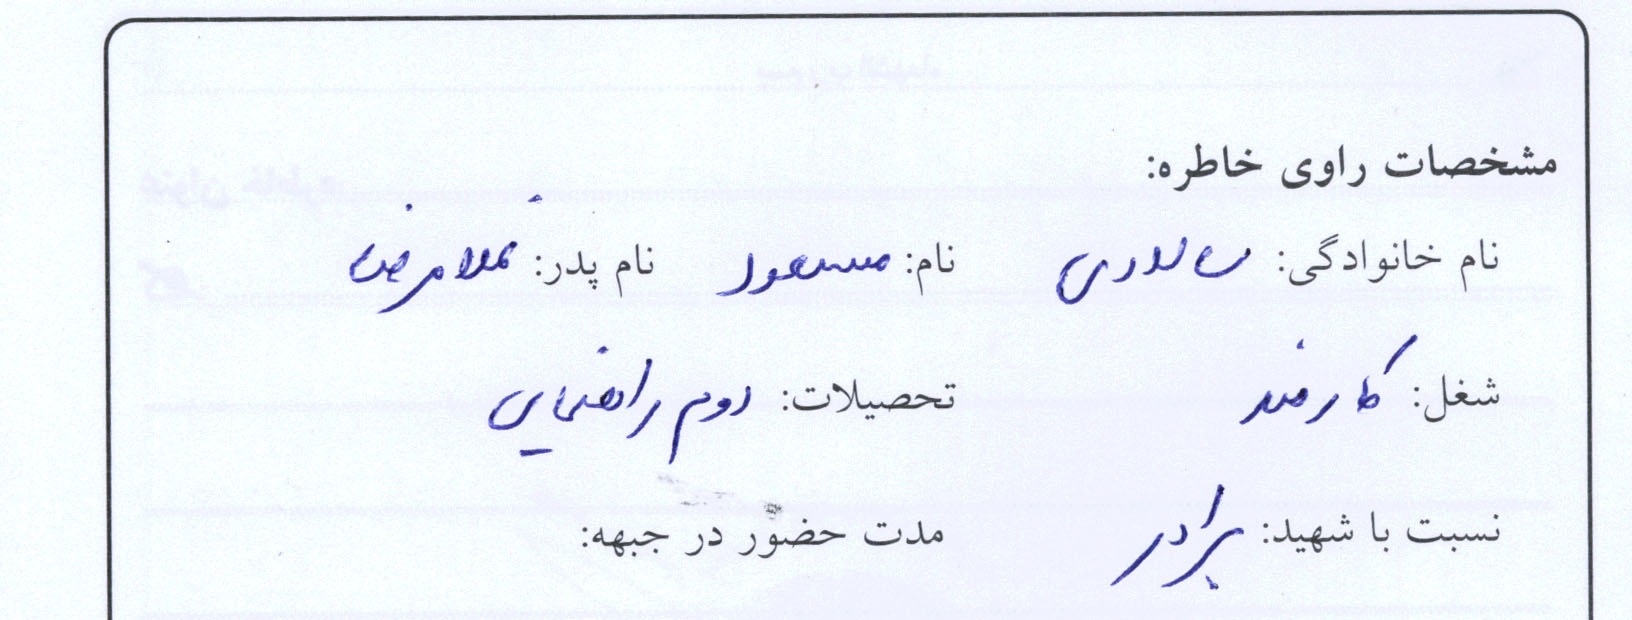 مشخصات راوی خاطره:
نام خانوادگی: سالاری نام: مسعود نام پدر: غلامرضا
شغل: کارمند تحصیلات: دوم راهنمایی
نسبت با شهید: برادر مدت حضور در جبهه: